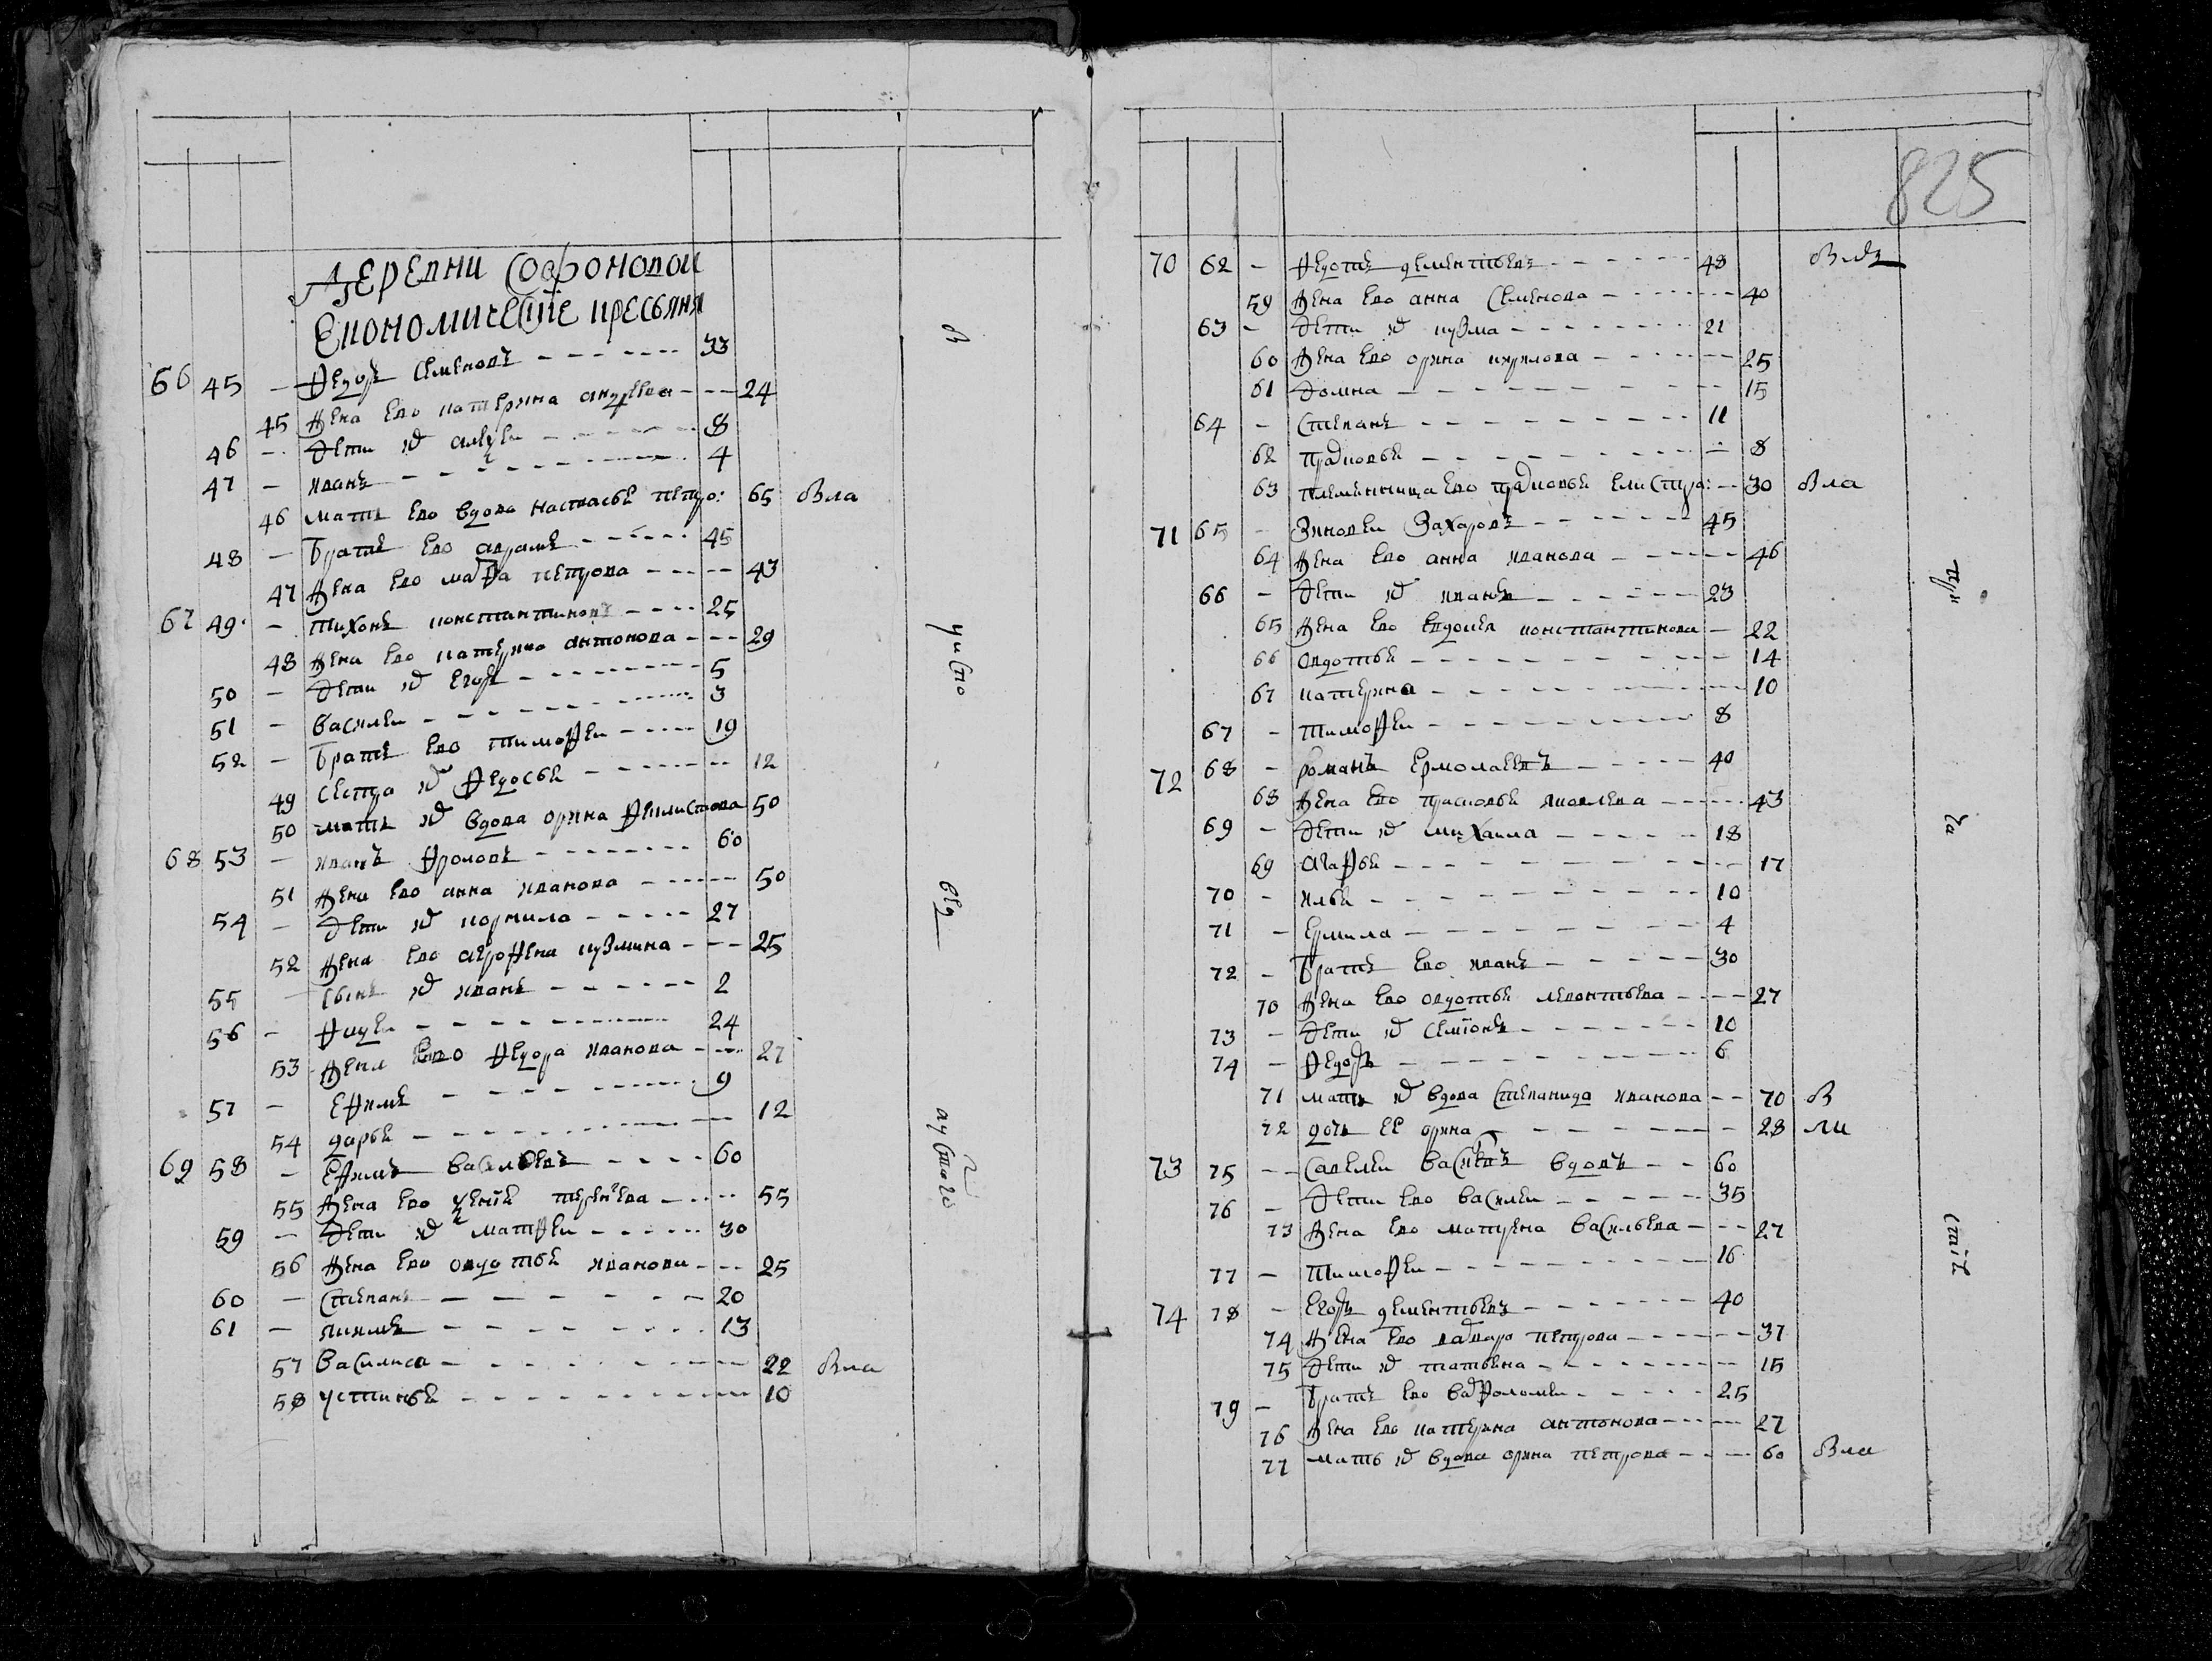 Деревни Софоновой
Економические кресьяня
66 45 - Федоръ Семеновъ 33
45 Жена ево катерина андреева 24
46 - Дети их алексеи 8
47 - иванъ 4
46 мать ево вдова настасья петро: 65 Вла
48 - Братъ ево аврамъ 45
47 Жена ево марфа петрова 43
67 49 - тихонъ константиновъ 25
48 Жена ево катерина антонова 29
50 - Дети их Егоръ 5
51 - василеи 3
52 - Братъ ево тимофеи 19
49 Сестра их Федосья 12
50 мать их вдова орина Филистова 50
68 53 - иванъ Фроловъ 60
51 Жена ево анна иванова 50
54 - Дети их кормила 27
52 Жена ево агрофена кузмина 25
55 - Сынъ их иванъ 2
56 - Фадеи 24
53 Жена Ево Федора иванова 27
57 - Ефимъ 9
54 дарья 12
69 58 - Ефимъ васильевъ 60
55 Жена ево терентева 55
59 - Дети их матфеи 30
56 Жена ево овдотья иванова 25
60 - Степанъ 20
61 - якимъ 13
57 василиса 22 Вла
58 устинья 10
В
чисто
вед
825
70 62 - Федотъ дементьевъ 48
59 Жена ево анна Семенова 40
63 - Дети их кузма 21
60 Жена ево орина кирилова 25
61 Домна 15
64 - Степанъ 11
62 прасковья 8
63 племянница ево прасковья елистра: 30 Вла
71 65 - Зиновеи Захаровъ 45
64 Жена ево анна иванова 46
66 - Дети их иванъ 23
65 Жена ево евдокея константинова 22
66 овдотья 14
67 катерина 10
67 - тимофеи 8
72 68 - романъ Ермолаевъ 40
68 Жена ево прасковья яковлева 43
69 - Дети их михаила 18
69 агафья 17
70 - илья 10
71 - Ермила 4
72 - Братъ ево иванъ 30
70 Жена ево овдотья левонтьева 27
73 - Дети их Семионъ 10
74 - Федоръ 6
71 мать их вдова Степанида иванова 70 В
72 дочь ее орина 28 ли
73 75 - Савелеи васильевъ вдовъ 60
76 - Дети ево василеи 35
73 Жена ево матрена васильева 27
77 - Тимофеи 16
74 78 - Егоръ дементьевъ 40
74 Жена ево варвара петрова 37
75 Дети их татьяна 15
79 - Братъ ево варфоломеи 25
76 Жена ево катерина антонова 27
77 мать их вдова орина петрова 60 Вла
при
ча
стiе